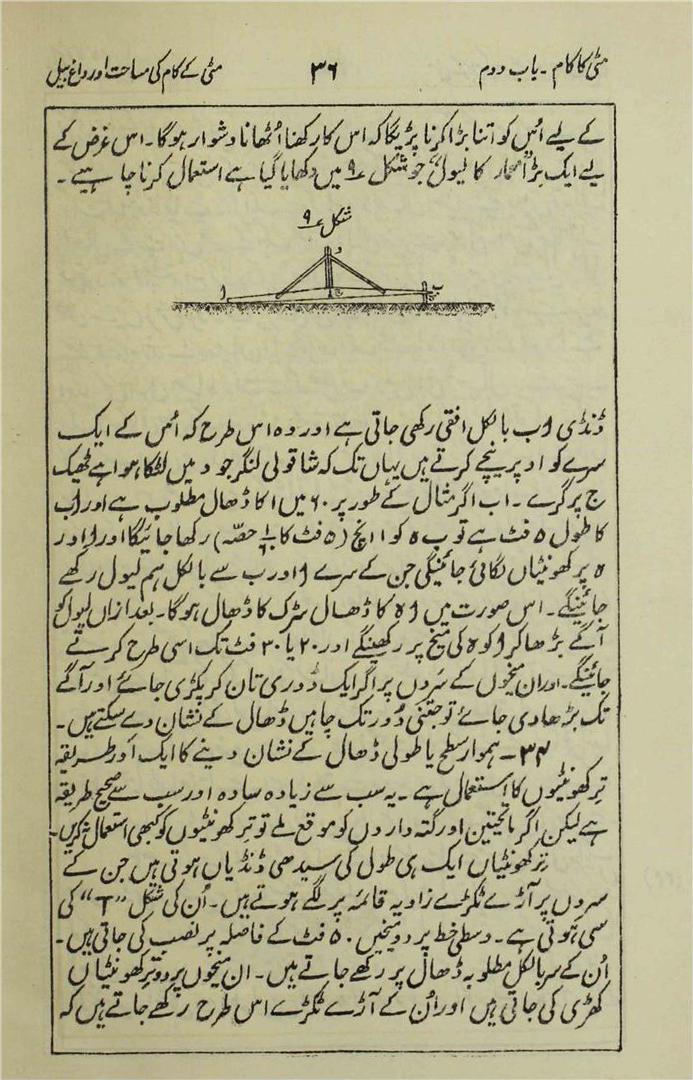 مٹی کا کام ۔ باب دوم
۳۶
مٹی کے کام کی مساحت اور داغ بیل
کے لیے اُس کو اتنا بڑا کرنا پڑیگا کہ اس کا رکھنا اُٹھانا دشوار ہوگا۔ اس غرض کے
لیے ایک بڑا معمار کا لیول جو شکل ۹ میں دکھایا گیا ہے استعمال کرنا چاہیے ۔
شکل ۹
د
ا
ج
ب
ڈنڈی ا ب بالکل افقی رکھی جاتی ہے اور وہ اس طرح کہ اُس کے ایک
سرے کو اوپر نیچے کرتے ہیں یہاں تک کہ شاقولی لنگر جو د میں لٹکا ہوا ہے ٹھیک
ج پر گرے ۔ اب اگر مثال کے طور پر ۶۰ میں ۱ کا ڈھال مطلوب ہے اور ا ب
کا طول ۵ فٹ ہے تو ب ہ کو ۱ انچ (۵ فٹ کا حصّہ) رکھا جائیگا اور ا اور
ہ پر کھونٹیاں لگائی جائینگی جن کے سرے ا اور ب سے بالکل ہم لیول رکھے
جائینگے ۔ اس صورت میں ا ہ کا ڈھال سڑک کا ڈھال ہوگا۔ بعد ازاں لیول کو
آگے بڑھا کر ا کو ہ کی میخ پر رکھینگے اور ۲۰ یا ۳۰ فٹ تک اسی طرح کرتے
جائینگے ۔ اور ان میخوں کے سروں پر اگر ایک ڈوری تان کر پکڑی جائے اور آگے
تک بڑھا دی جائے تو جتنی دُور تک چاہیں ڈھال کے نشان دے سکتے ہیں ۔
۳۴ ۔ ہموار سطح یا طولی ڈھال کے نشان دینے کا ایک اَور طریقہ
تِر کھونٹیوں کا استعمال ہے ۔ یہ سب سے زیادہ سادہ اور سب سے صحیح طریقہ
ہے لیکن اگر ماتحتین اور گتہ داروں کو موقع ملے تو تِر کھونٹیوں کو کبھی استعمال نہ کریں۔
تِر کھونٹیاں ایک ہی طول کی سیدھی ڈنڈیاں ہوتی ہیں جن کے
سروں پر آڑے ٹکڑے زاویہ قائمہ پر لگے ہوتے ہیں ۔ اُن کی شکل ”T“ کی
سی ہوتی ہے ۔ وسطی خط پر دو میخیں ۵۰ فٹ کے فاصلہ پر نصب کی جاتی ہیں ۔
اُن کے سر بالکل مطلوبہ ڈھال پر رکھے جاتے ہیں ۔ ان میخوں پر دو تِر کھونٹیاں
کھڑی کی جاتی ہیں اور اُن کے آڑے ٹکڑے اس طرح رکھے جاتے ہیں کہ